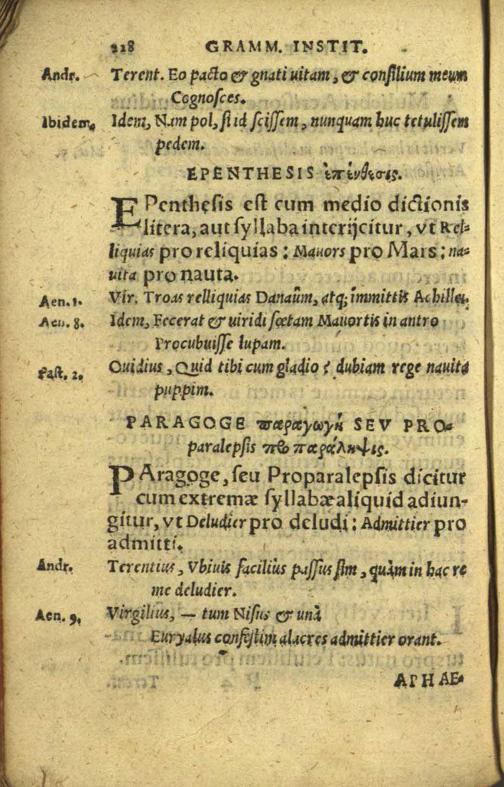 228 GRAMM. INSTIT.
Andr. Terent. Eo pacto & gnati uitam, & consilium meum
Cognosces.
Ibidem. Idem, Nam pol, si id scissem, nunquam huc tetulissem
pedem.
EPENTHESIS ἐπένθεσις.
EPenthesis est cum medio dictionis
litera, aut syllaba interijcitur, vt Rel-
liquias pro reliquias: Mauors pro Mars: na-
uita pro nauta.
Aen. 1. Vir. Troas relliquias Danaûm, atq; immitis Achillei.
Aen. 8. Idem, Fecerat & uiridi fœtam Mauortis in antro
Procubuisse lupam.
Fast. 2. Ouidius, Quid tibi cum gladio? dubiam rege nauita
puppim.
PARAGOGE παραγωγὴ SEV PRO-
paralepsis παράληψις.
PAragoge, seu Proparalepsis dicitur
cum extremæ syllabæ aliquid adiun-
gitur, vt Deludier pro deludi: Admittier pro
admitti.
Andr. Terentius, Vbiuis facilius passus sim, quàm in hac re
me deludier.
Aen. 9. Virgilius, — tum Nisus & unà
Euryalus confestim alacres admittier orant.
APHAE-